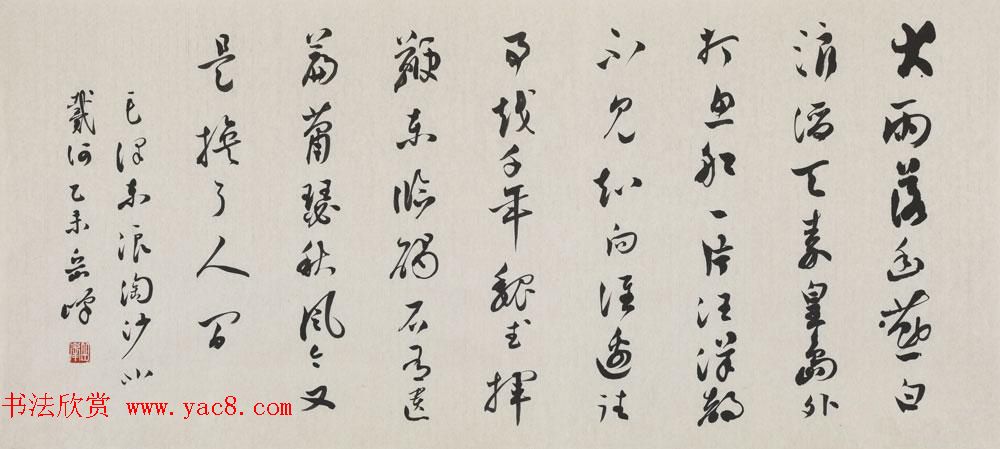 大雨落幽燕白
浪滔天秦皇島外
打魚船一片汪洋都
不見知向誰邊往
事越千年魏武揮
鞭東臨碣石有遺
篇蕭瑟秋風今又
是換了人間
毛澤東浪淘沙北
戴河乙未岳峰
书法欣赏 www.yac8.com